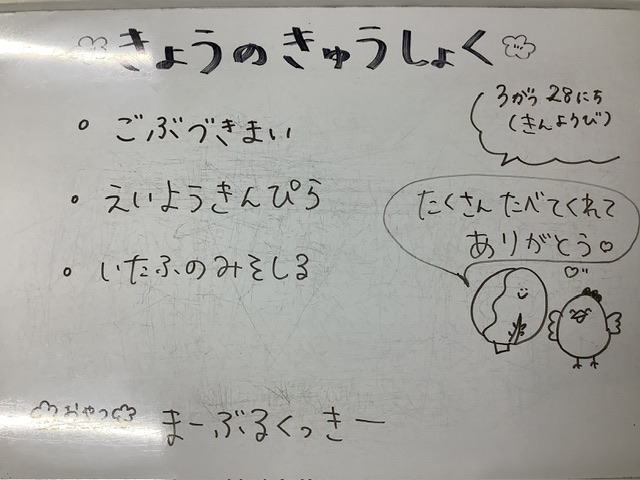 きょうのきゅうしょく
3がつ28にち
(きんようび)
。ごぶづきまい
。えいようきんぴら
。いたふのみそしる
たくさんたべてくれて
ありがとう♡
おやつ まーぶるくっきー